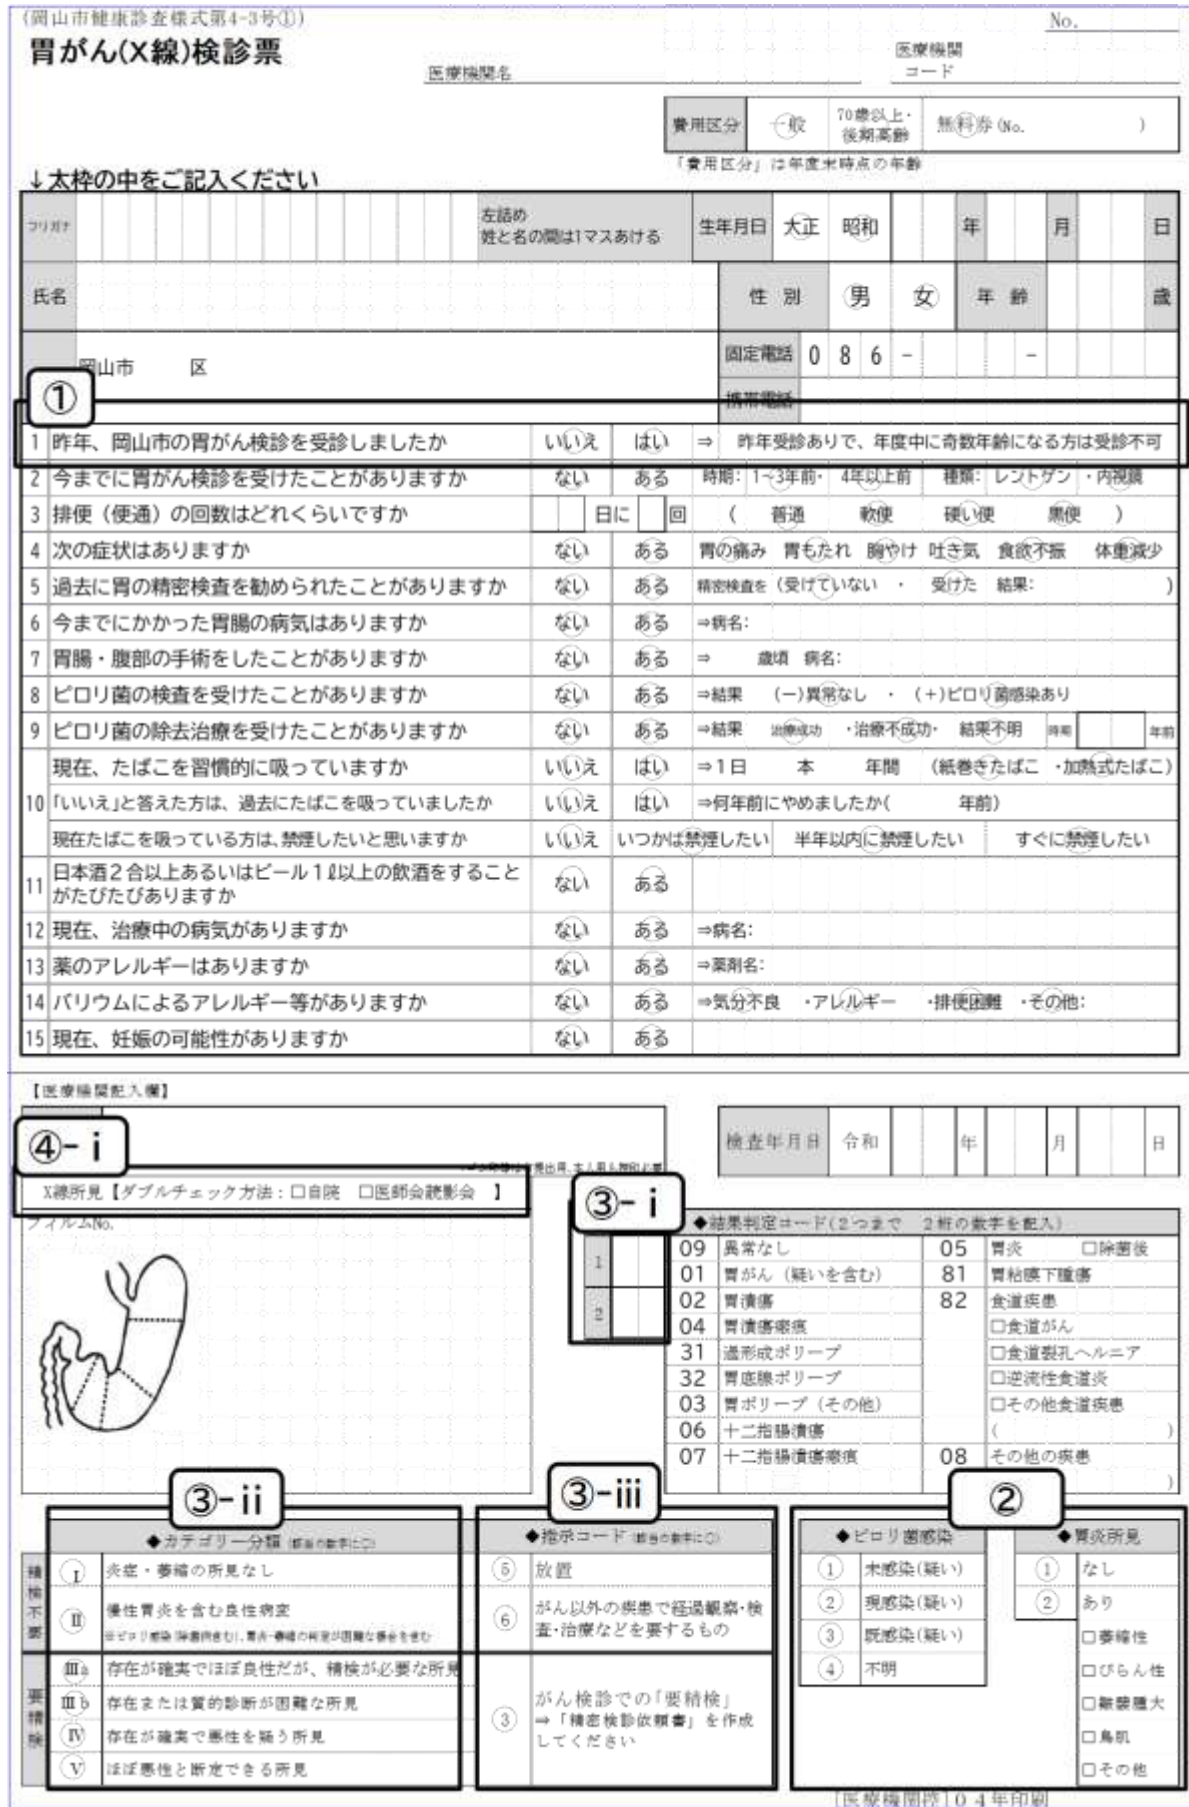 (岡山市健康診査様式第4-3号①)
No.
胃がん(X線)検診票
医療機関名
医療機関
コード
費用区分 一般 70歳以上・後期高齢 無料券(No. )
「費用区分」は年度末時点の年齢
↓太枠の中をご記入ください
フリガナ 左詰め 姓と名の間は1マスあける 生年月日 大正 昭和 年 月 日
氏名 性別 男 女 年齢 歳
岡山市 区 固定電話 0 8 6 - -
携帯電話
①
1 昨年、岡山市の胃がん検診を受診しましたか いいえ はい ⇒ 昨年受診ありで、年度中に奇数年齢になる方は受診不可
2 今までに胃がん検診を受けたことがありますか ない ある 時期: 1~3年前・ 4年以上前 種類: レントゲン ・内視鏡
3 排便(便通)の回数はどれくらいですか 日に 回 ( 普通 軟便 硬い便 黒便 )
4 次の症状はありますか ない ある 胃の痛み 胃もたれ 胸やけ 吐き気 食欲不振 体重減少
5 過去に胃の精密検査を勧められたことがありますか ない ある 精密検査を (受けていない ・ 受けた 結果: )
6 今までにかかった胃腸の病気はありますか ない ある ⇒病名:
7 胃腸・腹部の手術をしたことがありますか ない ある ⇒ 歳頃 病名:
8 ピロリ菌の検査を受けたことがありますか ない ある ⇒結果 (-)異常なし ・ (+)ピロリ菌感染あり
9 ピロリ菌の除去治療を受けたことがありますか ない ある ⇒結果 治療成功 ・治療不成功・ 結果不明 時期 年前
現在、たばこを習慣的に吸っていますか いいえ はい ⇒1日 本 年間 (紙巻きたばこ ・加熱式たばこ)
10 「いいえ」と答えた方は、過去にたばこを吸っていましたか いいえ はい ⇒何年前にやめましたか( 年前)
現在たばこを吸っている方は、禁煙したいと思いますか いいえ いつかは禁煙したい 半年以内に禁煙したい すぐに禁煙したい
11 日本酒2合以上あるいはビール1ℓ以上の飲酒をすること
がたびたびありますか ない ある
12 現在、治療中の病気がありますか ない ある ⇒病名:
13 薬のアレルギーはありますか ない ある ⇒薬剤名:
14 バリウムによるアレルギー等がありますか ない ある ⇒気分不良 ・アレルギー ・排便困難 ・その他:
15 現在、妊娠の可能性がありますか ない ある
【医療機関記入欄】
検査年月日 令和 年 月 日
④-i
X線所見【ダブルチェック方法:□自院 □医師会読影会 】
フィルムNo.
③-i
1
2
◆結果判定コード(2つまで 2桁の数字を記入)
09 異常なし 05 胃炎 □除菌後
01 胃がん(疑いを含む) 81 胃粘膜下腫瘍
02 胃潰瘍 82 食道疾患
04 胃潰瘍瘢痕 □食道がん
31 過形成ポリープ □食道裂孔ヘルニア
32 胃底腺ポリープ □逆流性食道炎
03 胃ポリープ(その他) □その他食道疾患
06 十二指腸潰瘍 ( )
07 十二指腸潰瘍瘢痕 08 その他の疾患
)
③-ii
◆カテゴリー分類 (該当の数字に○)
精検不要
I 炎症・萎縮の所見なし
II 慢性胃炎を含む良性病変
※ピロリ感染(除菌後含む)、胃炎・萎縮の判定が困難な場合を含む
要精検
IIIa 存在が確実でほぼ良性だが、精検が必要な所見
IIIb 存在または質的診断が困難な所見
IV 存在が確実で悪性を疑う所見
V ほぼ悪性と断定できる所見
③-iii
◆指示コード (該当の数字に○)
⑤ 放置
⑥ がん以外の疾患で経過観察・検
査・治療などを要するもの
③ がん検診での「要精検」
⇒「精密検診依頼書」を作成
してください
②
◆ピロリ菌感染
① 未感染(疑い)
② 現感染(疑い)
③ 既感染(疑い)
④ 不明
◆胃炎所見
① なし
② あり
□萎縮性
□びらん性
□皺襞腫大
□鳥肌
□その他
[医療機関控]04年印刷